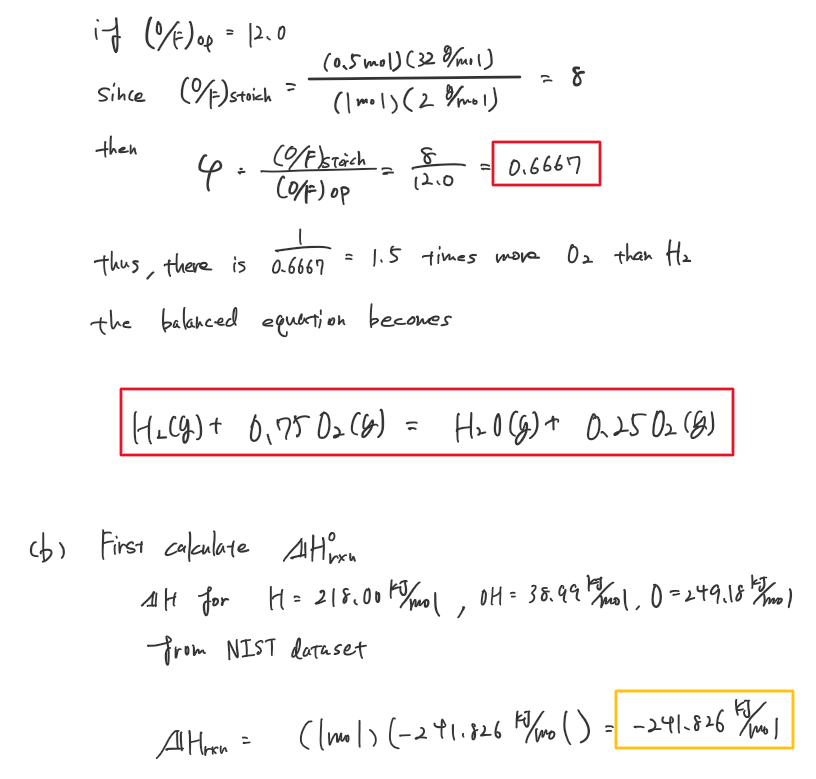 if (O/F)op = 12.0
since (O/F)stoich = (0.5mol)(32 g/mol) / (1mol)(2 g/mol) = 8
then φ = (O/F)stoich / (O/F)op = 8 / 12.0 = 0.6667
thus, there is 1 / 0.6667 = 1.5 times more O₂ than H₂
the balanced equation becomes
H₂(g) + 0.75 O₂(g) = H₂O(g) + 0.25 O₂(g)
(b) First calculate ΔH°rxn
ΔH for H = 218.00 kJ/mol, OH = 38.99 kJ/mol, O = 249.18 kJ/mol
from NIST dataset
ΔHrxn = (1mol)(-241.826 kJ/mol) = -241.826 kJ/mol